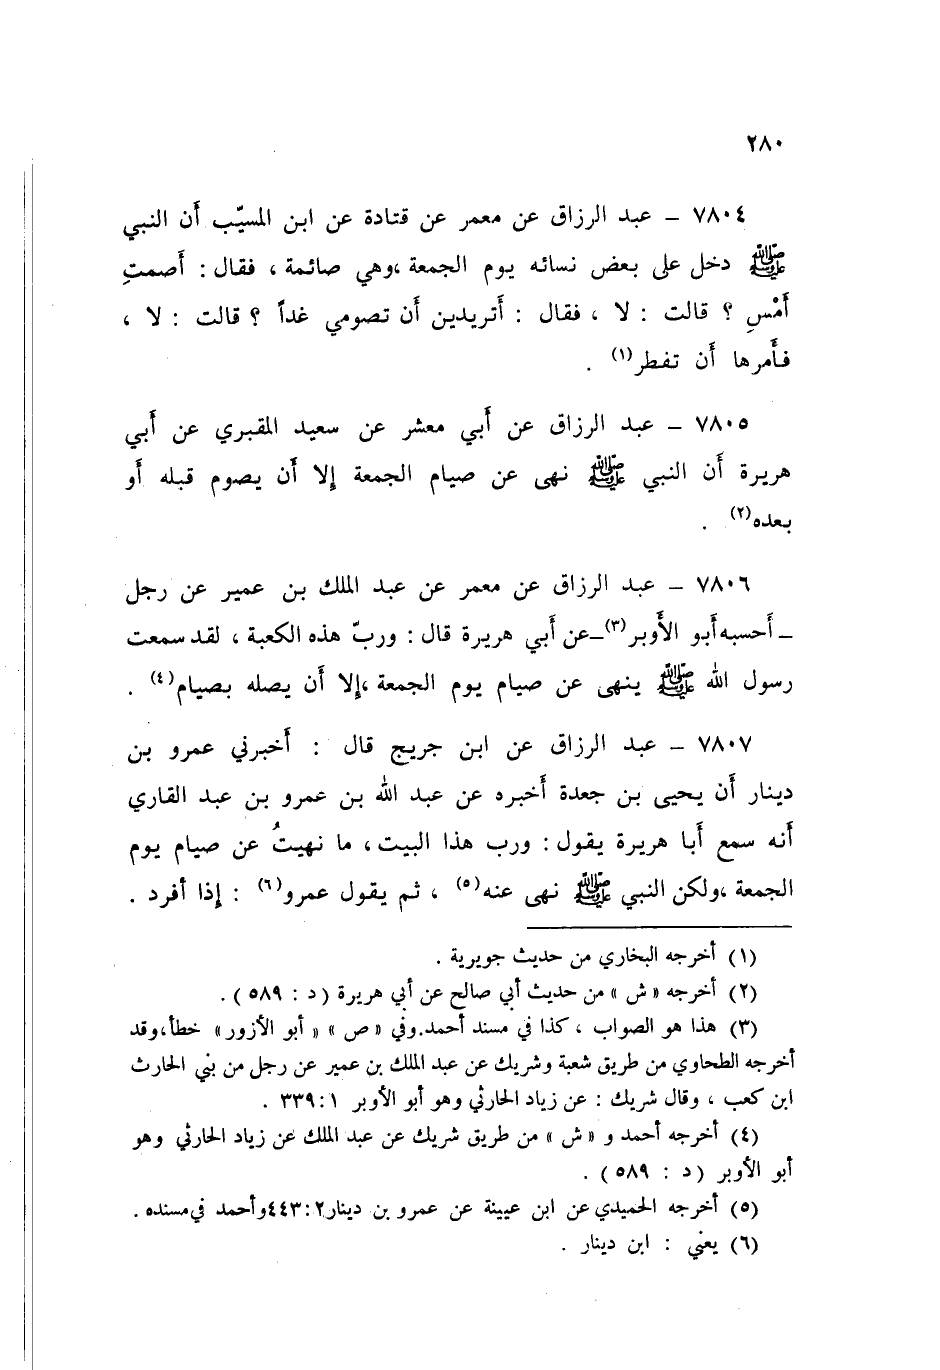 ٢٨٠
٧٨٠٤ – عبد الرزاق عن معمر عن قتادة عن ابن المسيّب أَن النبي
ﷺ دخل على بعض نسائه يوم الجمعة ،وهي صائمة ، فقال : أَصمتِ
أَمْسِ ؟ قالت : لا ، فقال : أَتريدين أَن تصومي غداً ؟ قالت : لا ،
فأَمرها أَن تفطر(١) .
٧٨٠٥ – عبد الرزاق عن أَبي معشر عن سعيد المقبري عن أَبي
هريرة أَن النبي ﷺ نهى عن صيام الجمعة إِلا أَن يصوم قبله أَو
بعده(٢) .
٧٨٠٦ – عبد الرزاق عن معمر عن عبد الملك بن عمير عن رجل
– أَحسبه أَبو الأَوبر(٣)–عن أَبي هريرة قال : وربّ هذه الكعبة ، لقد سمعت
رسول الله ﷺ ينهى عن صيام يوم الجمعة ،إِلا أَن يصله بصيام(٤) .
٧٨٠٧ – عبد الرزاق عن ابن جريج قال : أَخبرني عمرو بن
دينار أَن يحيى بن جعدة أَخبره عن عبد الله بن عمرو بن عبد القاري
أَنه سمع أَبا هريرة يقول : ورب هذا البيت ، ما نهيتُ عن صيام يوم
الجمعة ،ولكن النبي ﷺ نهى عنه(٥) ، ثم يقول عمرو(٦) : إِذا أَفرد .
(١) أخرجه البخاري من حديث جويرية .
(٢) أخرجه « ش » من حديث أبي صالح عن أبي هريرة (د : ٥٨٩) .
(٣) هذا هو الصواب ، كذا في مسند أحمد.وفي « ص » « أبو الأزور » خطأ،وقد
أخرجه الطحاوي من طريق شعبة وشريك عن عبد الملك بن عمير عن رجل من بني الحارث
ابن كعب ، وقال شريك : عن زياد الحارثي وهو أبو الأوبر ١ : ٣٣٩ .
(٤) أخرجه أحمد و « ش » من طريق شريك عن عبد الملك عن زياد الحارثي وهو
أبو الأوبر (د : ٥٨٩) .
(٥) أخرجه الحميدي عن ابن عيينة عن عمرو بن دينار٢ : ٤٤٣وأحمد في مسنده .
(٦) يعني : ابن دينار .